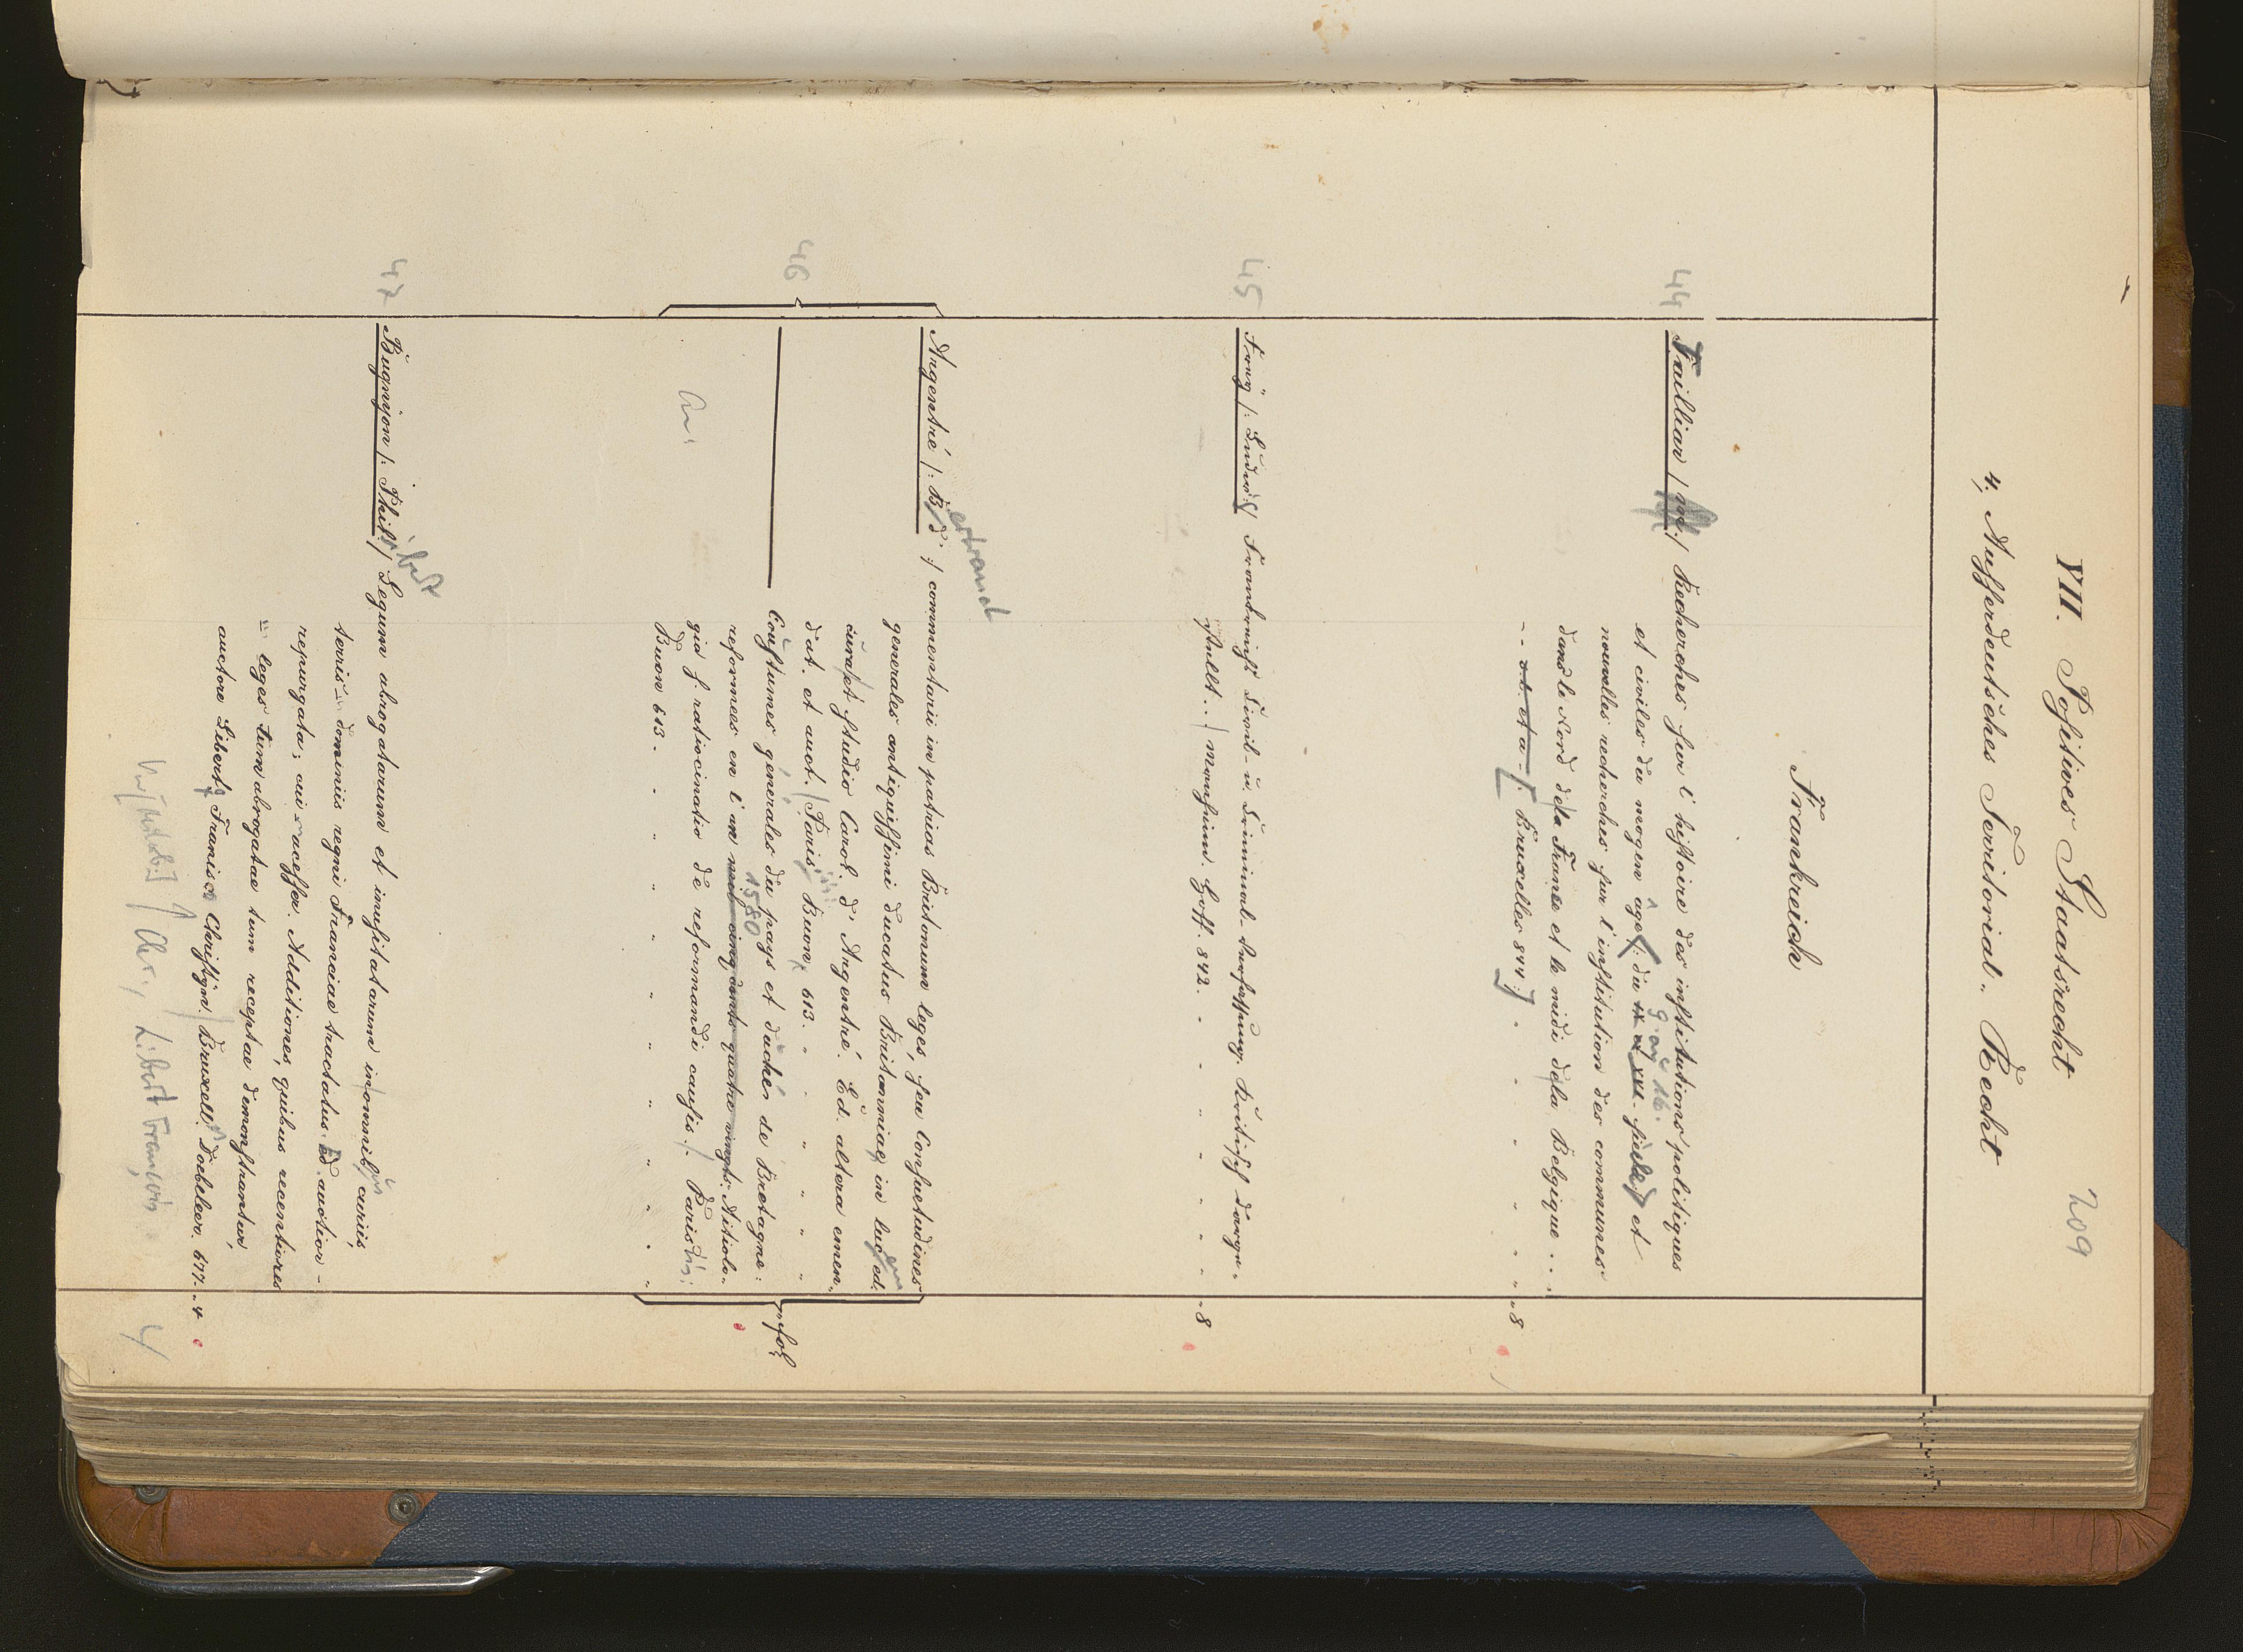 VII. Positives Staatsrecht
209
4, Ausserdeutsches Territorial-Recht
Frankreich
44
Tailliar /: Recherches sur l'histoire des institutions politiques
et civiles du moyen âge (: du IX et XVI. siècle:) et
9 au 16.
nouvelles recherches sur l'institution des communes
dans le Nord de la France et le midi de la Belgique . . .
. . et a - /: Bruxelles 844:/ - 8
45
Frey /: Ludw:/ Frankreichs Civil- u. Criminal-Verfassung. Kritisch darge-
stellt . . / Mannheim. Hoff. 842. - 8
46
Argentré /: B. d':/ commentarii in patrias Britonum leges, seu Consuetudines
ertrand
generales antiquissimi ducatus Britanniae, in luc. ed.
em
cura et studio Carol. d'Argentré. Ed. altera emen-
dat. et auct. / Paris, Buon, 613.
Coustumes générales du pays et duché de Bretagne:
reformees en l'an mil cinq cents quatre vingts. Aitiolo-
1580
gia s. ratiocinatio de reformandi causis. / Paris:
Buon 613.
fol
47
Bugnyon /: Phil:/ Legum abrogatarum et inusitatarum in omnib, curiis,
ibert
us
terris dominiis regni Franciae tractatus. Ed. auctior-
repurgata; cui access. Additiones, quibus recentiores
leges tum abrogatae tum receptae demonstrantur,
auctore Libert. Francisco Christyn. / Bruxell. Dobbeleer. 677. 4
Chr., Libert François
4